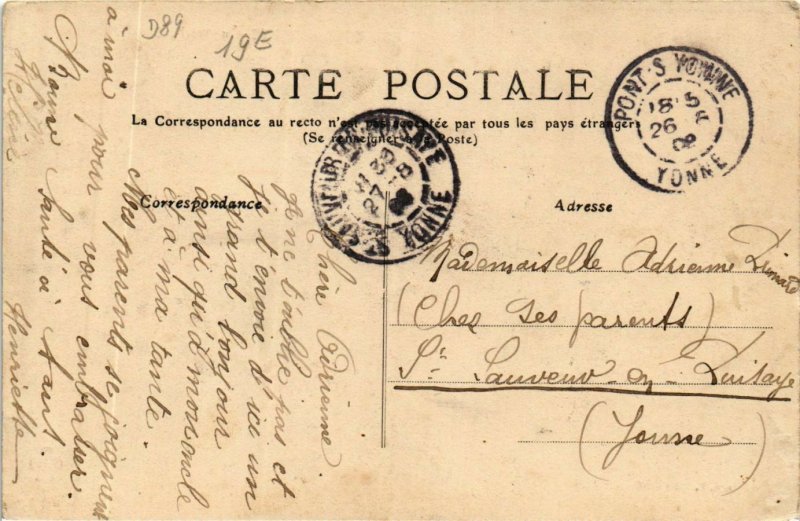 D89
19E
CARTE POSTALE
La Correspondance au recto n'est pas acceptée par tous les pays étrangers
(Se renseigner à la Poste)
Correspondance
Adresse
PONT-S-YONNE
18 5
26 4
08
YONNE
ST SAUVEUR-EN-PUISAYE
YONNE
Mademoiselle Adrienne
(Chez ses parents)
St Sauveur-en-Puisaye
(Yonne)
Chère Adrienne
Je ne t'oublie pas et
je t'envoie d'ici un
grand bonjour
ainsi qu'à mon oncle
et à ma tante.
Mes parents se joignent
à moi pour vous embrasser.
Bonne santé à tous.
Henriette